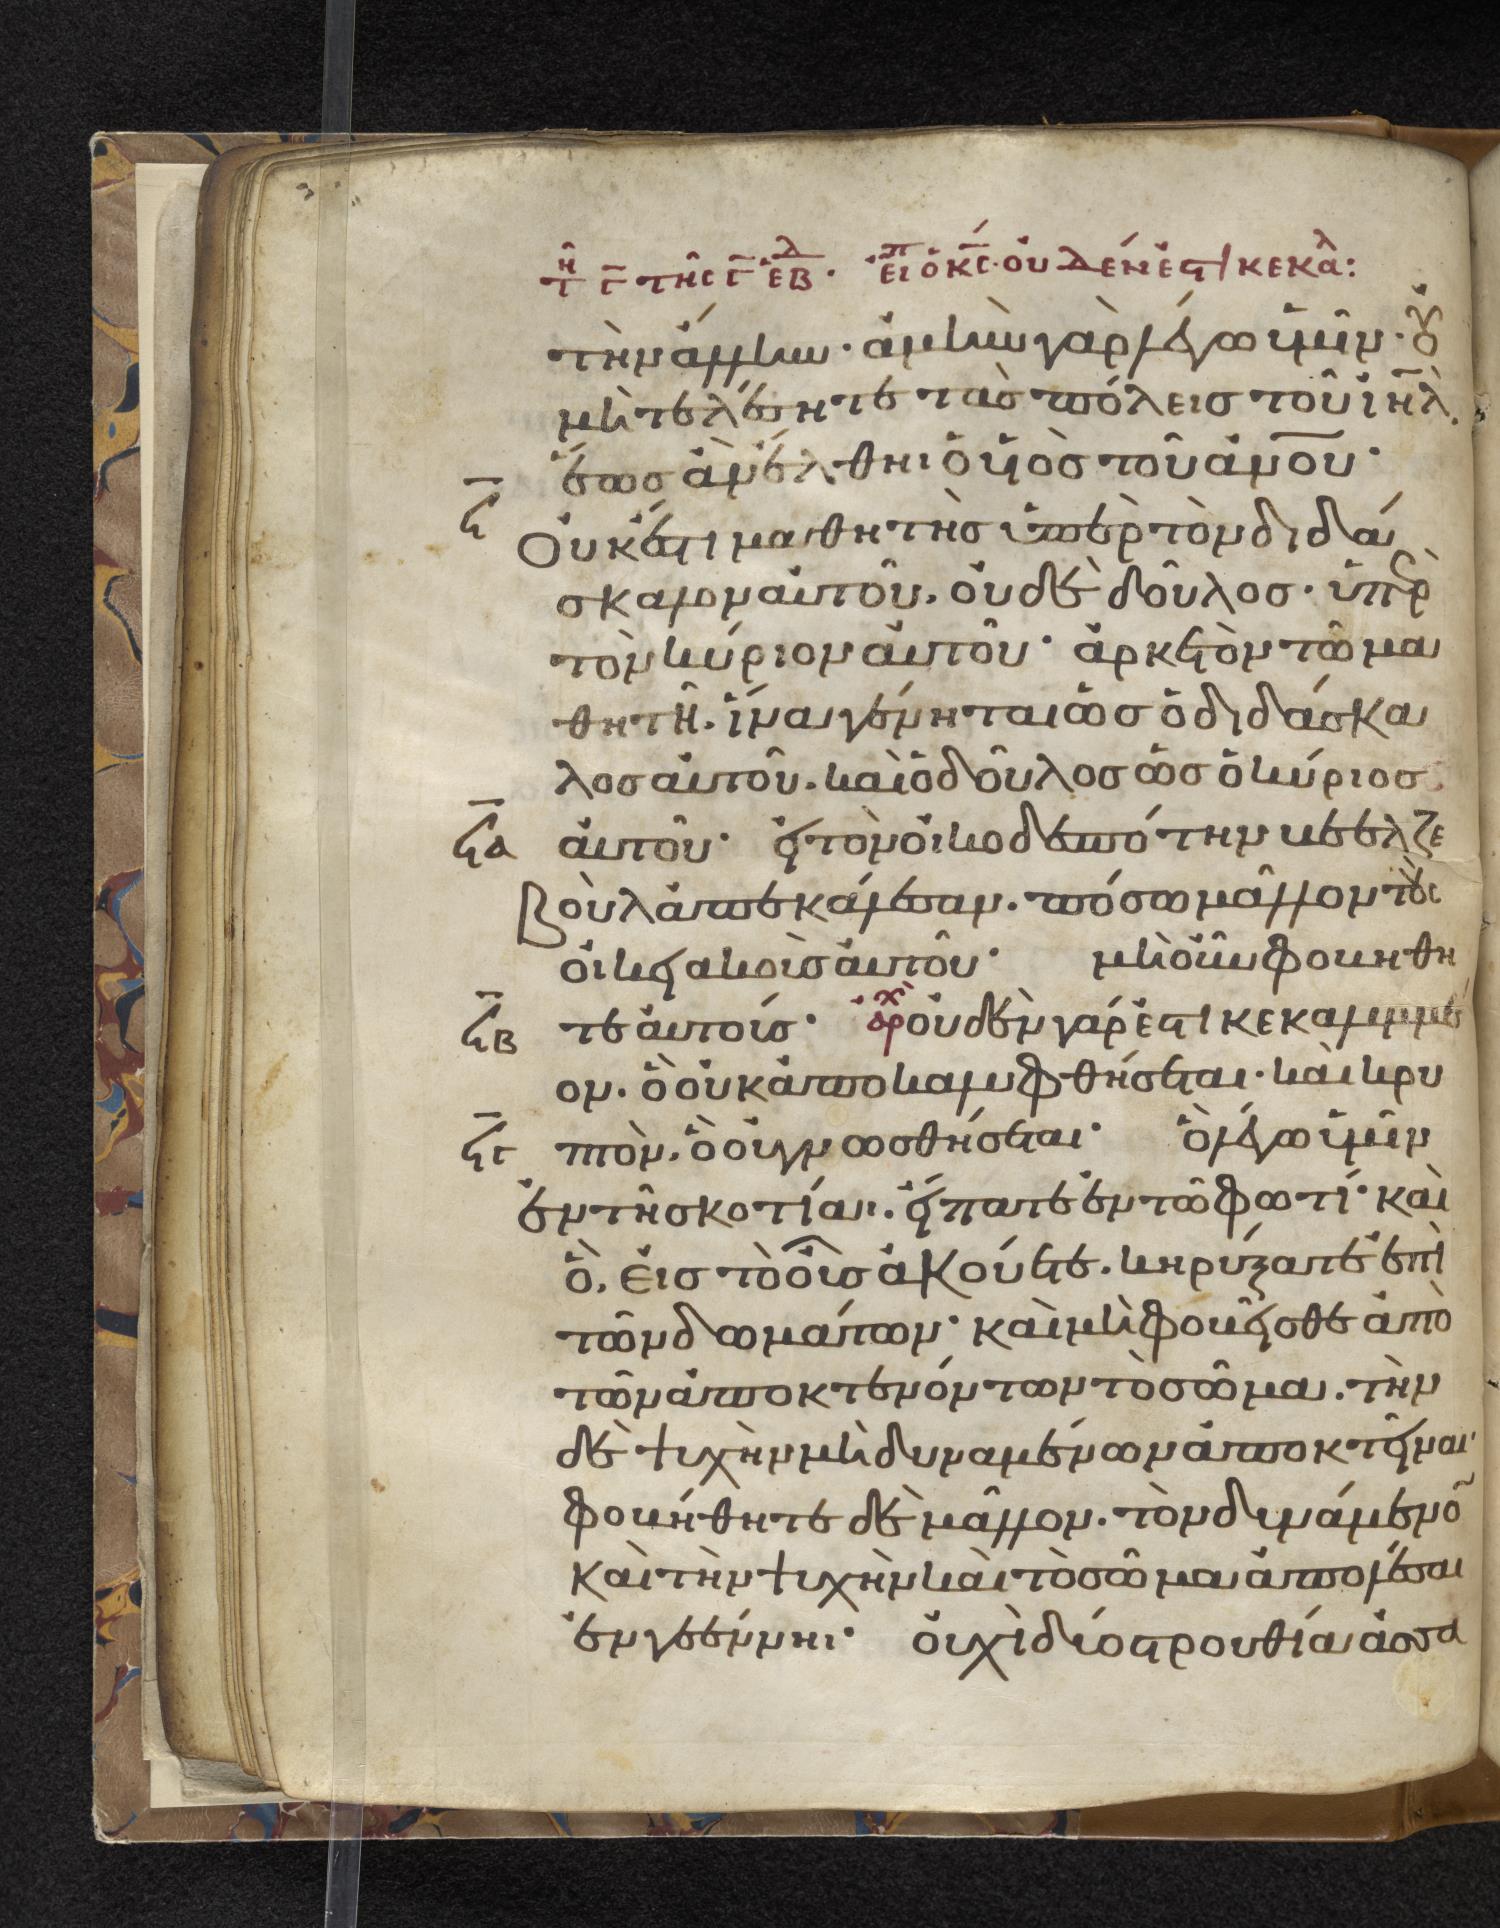 τῆ γ̅ τῆς γ̅ ἑβδ. εἶπ ὁ κ̅ς̅. οὐδέν ἐστι κεκαλ:
τὴν ἄλλην· ἀμὴν γὰρ λέγω ὑμῖν· οὐ
μὴ τελέσητε τὰς πόλεις τοῦ ἰη̅λ̅.
ἕως ἂν ἔλθηι ὁ υἱὸς τοῦ ἀν̅ο̅υ̅·
ϟ̅
Οὐκ ἔστι μαθητὴς ὑπὲρ τὸν διδά
σκαλον αὐτοῦ. οὐδὲ δοῦλος. ὑπὲρ
τὸν κύριον αὐτοῦ· ἀρκετὸν τῶ μα
θητῆ. ἵνα γένηται ὡς ὁ διδάσκα
λος αὐτοῦ. καὶ ὁ δοῦλος ὡς ὁ κύριος
ϟα̅ αὐτοῦ· εἰ τὸν οἰκοδεσπότην βεελζε
βοὺλ ἀπεκάλεσαν. πόσω μᾶλλον τοὺς
οἰκειακοὺς αὐτοῦ· μὴ οὖν φοβηθη
ϟβ̅ τε αὐτοίς· ἀρχ οὐδὲν γάρ ἐστι κεκαλυμμέ
ον. ὃ οὐκ ἀποκαλυφθήσεται. καὶ κρυ
ϟγ̅ πτὸν. ὃ οὐ γνωσθήσεται· ὃ λέγω ὑμῖν
ἐν τῆ σκοτίαι. εἴπατε ἐν τῶ φωτί· καὶ
ὃ. εἰς τὸ οὖς ἀκούετε. κηρύξατε ἐπὶ
τῶν δωμάτων· καὶ μὴ φοβεῖσθε ἀπὸ
τῶν ἀποκτενόντων τὸ σῶμα. τὴν
δὲ ψυχὴν μὴ δυναμένων ἀποκτεῖναι·
φοβήθητε δὲ μᾶλλον. τὸν δυνάμενο̅
καὶ τὴν ψυχὴν καὶ τὸ σῶμα ἀπολέσαι
ἐν γεέννηι· οὐχὶ δύο στρουθία ἀσσα